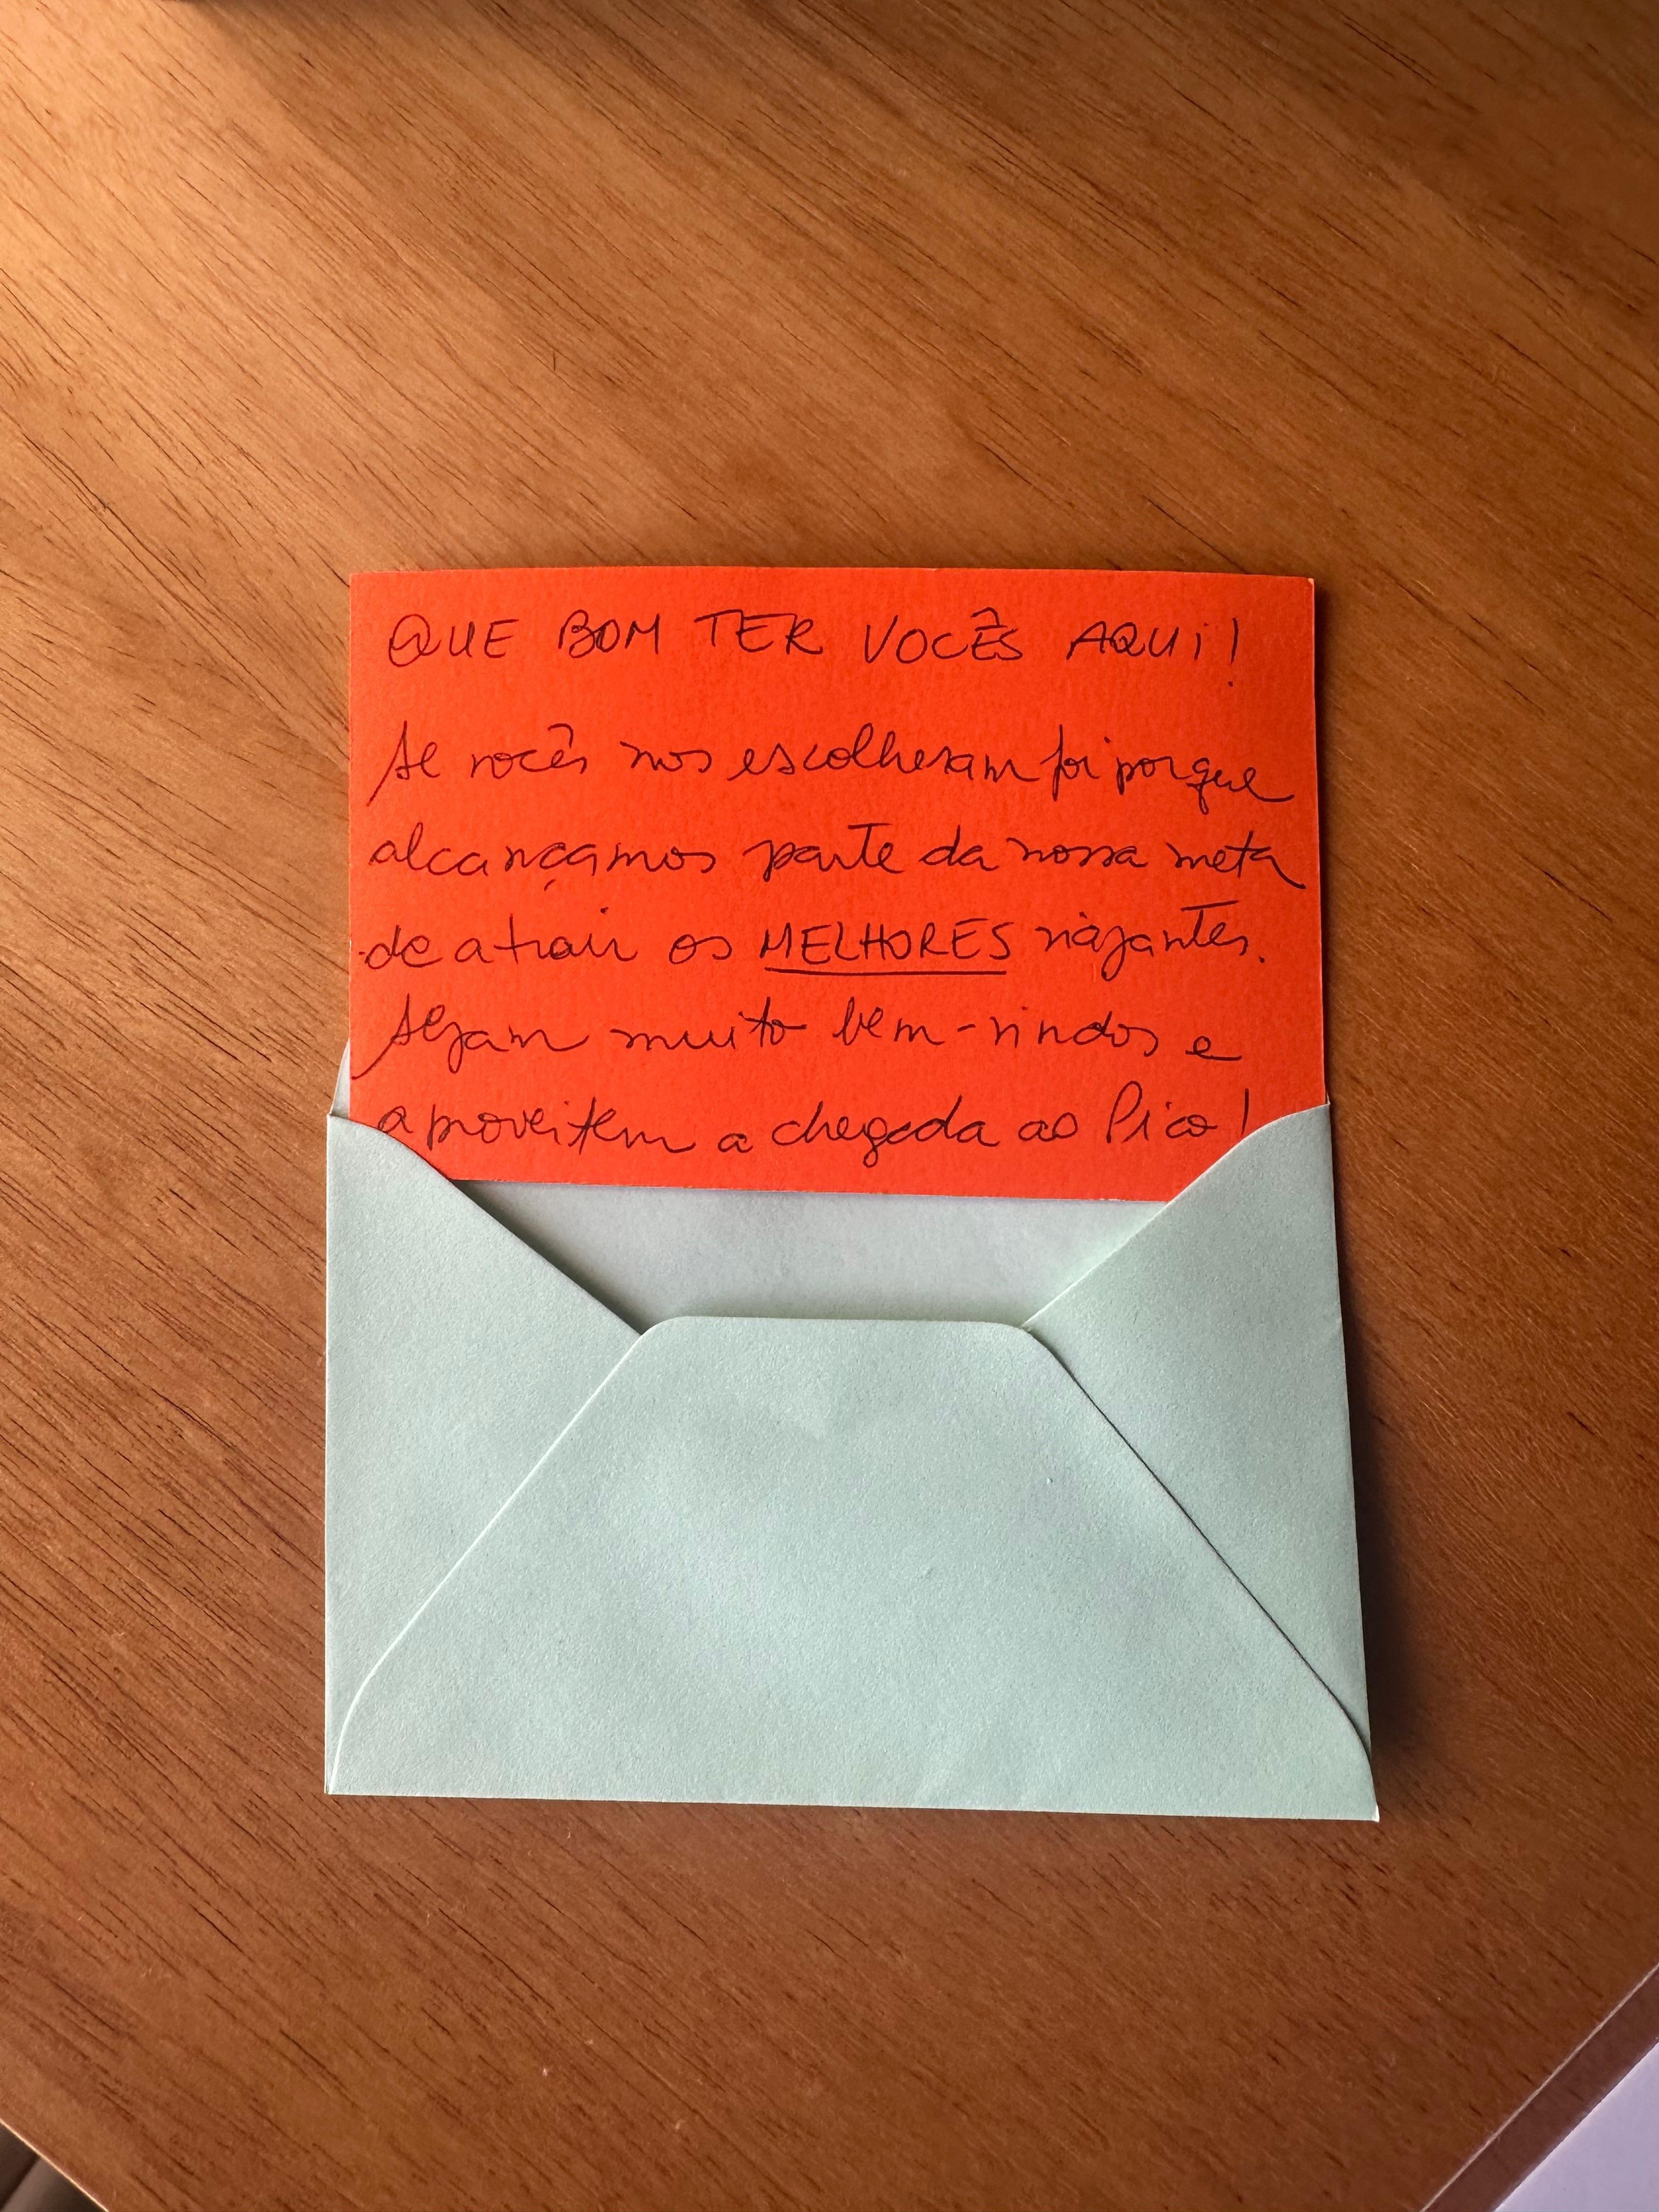 QUE BOM TER VOCÊS AQUI!
Se vocês nos escolheram foi porque
alcançamos parte da nossa meta
de atrair os MELHORES viajantes.
Sejam muito bem-vindos e
aproveitem a chegada ao Pico!